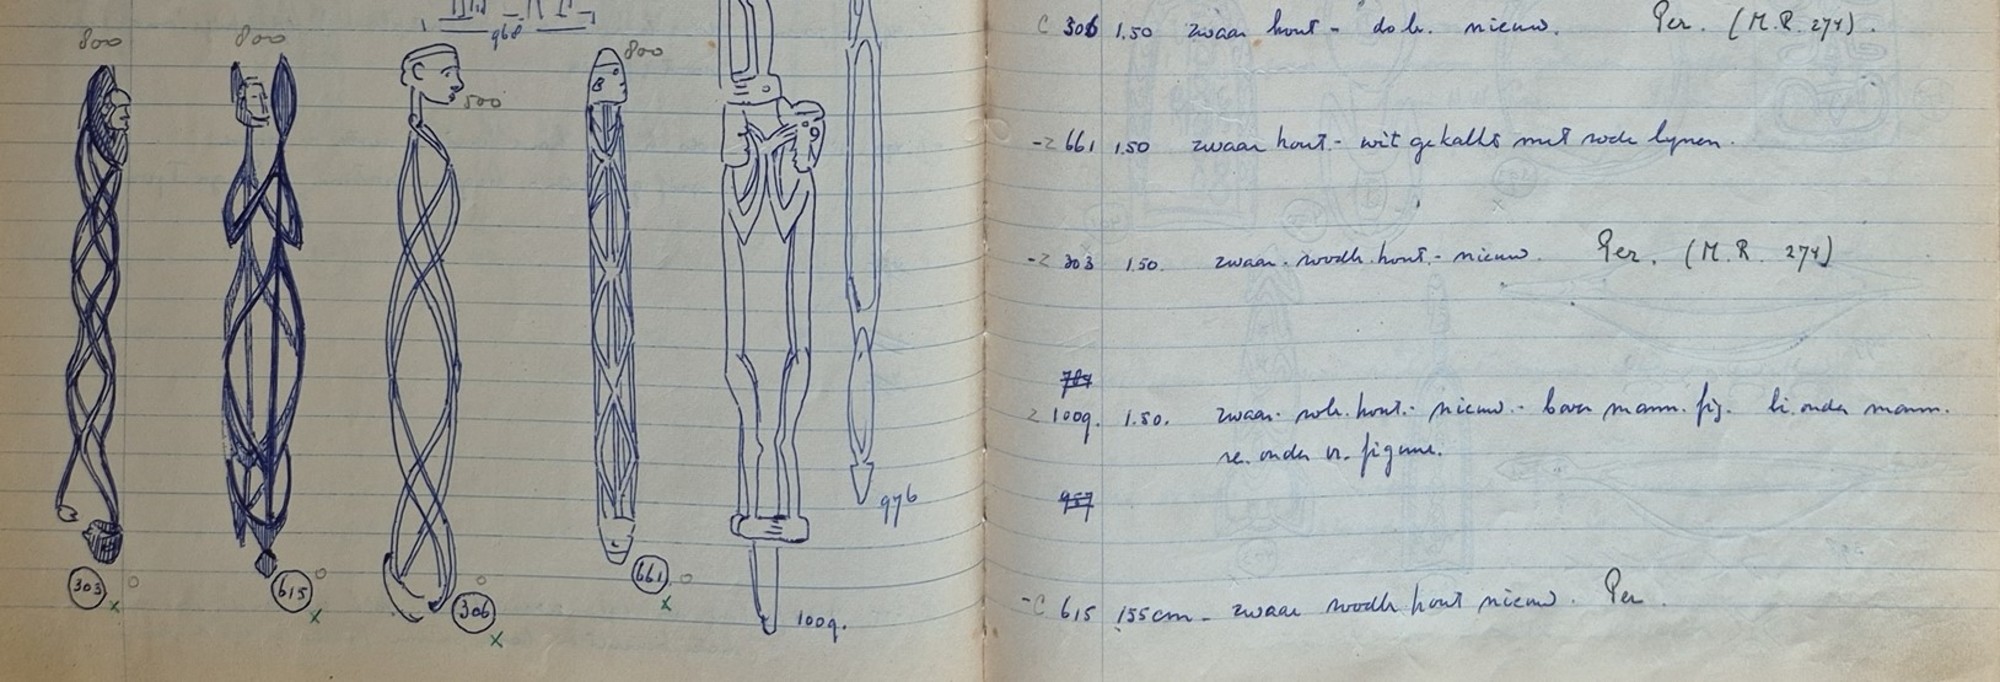 968
800
800
500
800
976
303
615
306
661
1009.
C 306 1.50 zwaar hout - donk. nieuw. Per. (M.R. 274).
-Z 661 1.50 zwaar hout - wit gekalkt met rode lynen.
-Z 303 1.50. zwaar. roodb. hout. - nieuw. Per. (M.R. 274)
Z 1009. 1.50. zwaar. hout. - nieuw. - boven mann. fig. li. onder mann.
re. onder vr. figuur.
957
-C 615 155cm - zwaar roodb hout nieuw. Per.